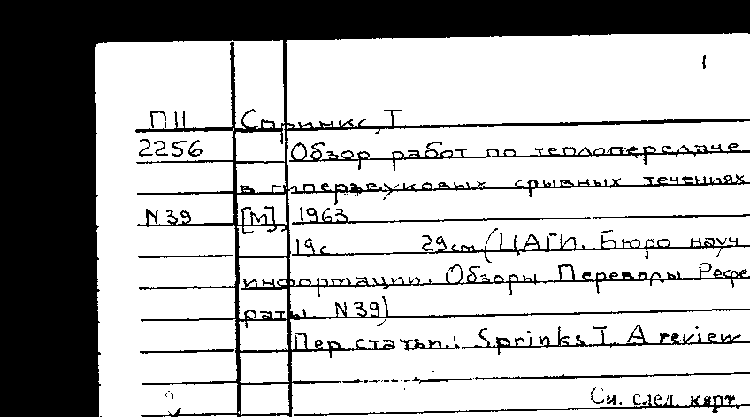 1
П11 Спринкс, Т
2256 Обзор работ по теплопередаче
в гиперзвуковых срывных течениях
N39 [М], 1963
19с 29см (ЦАГИ. Бюро науч.
информации. Обзоры. Переводы. Рефе
раты. N39)
Пер. статьи: Sprinks T. A review
См. след. карт.